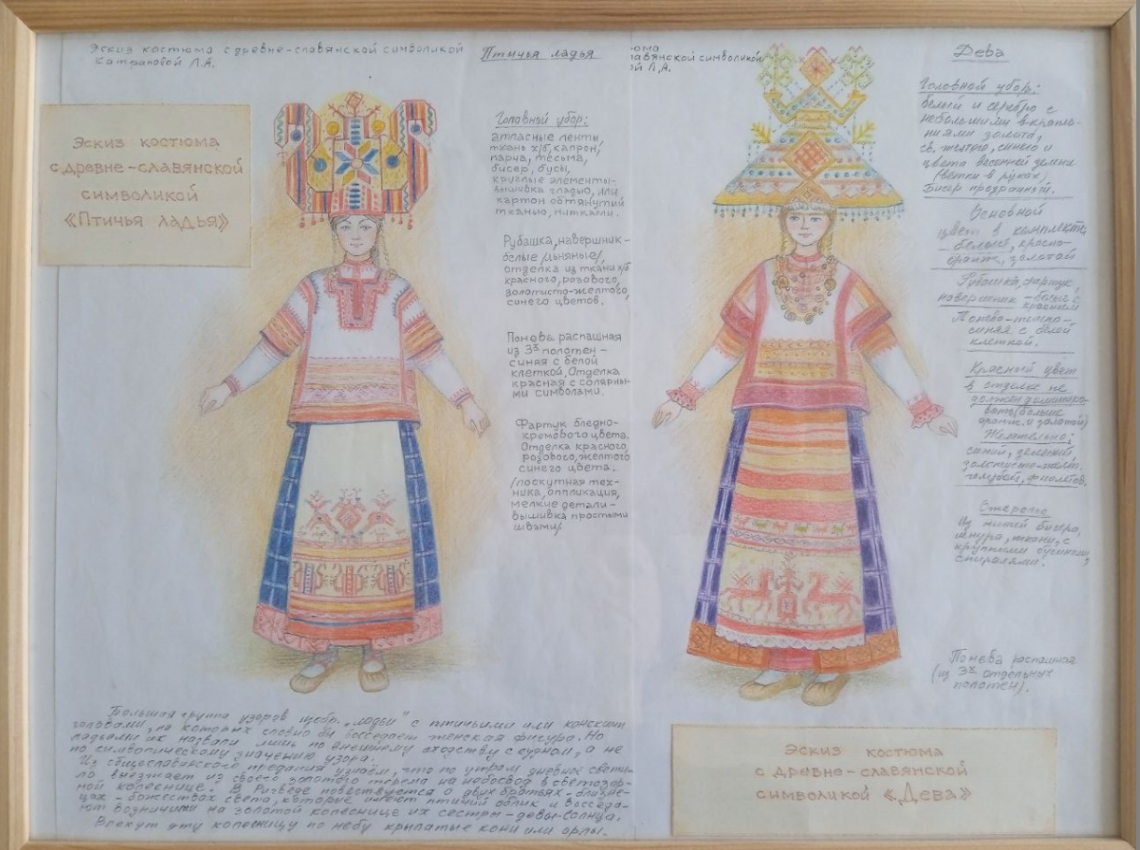 Эскиз костюма с древне-славянской символикой
Катрановой Л.А.
Эскиз костюма
с древне-славянской
символикой
«Птичья ладья»
Птичья ладья
Головной убор:
атласные ленты,
ткань х/б, капрон,
парча, тесьма,
бисер, бусы,
круглые элементы-
вышивка гладью, или
картон обтянутый
тканью, нитками.
Рубашка, навершник-
белые /льняные/,
отделка из ткани х/б
красного, розового,
золотисто-желтого,
синего цветов.
Понева распашная
из 3х полотен-
синяя с белой
клеткой. Отделка
красная с солярны-
ми символами.
Фартук бледно-
кремового цвета.
Отделка красного,
розового, желтого
синего цвета.
/лоскутная тех-
ника, аппликация,
мелкие детали-
вышивка простыми
швами/
Большая группа узоров изобр. „ладьи" с птичьими или конскими
головами, на которых словно бы восседает женская фигура. Но
ладьями их назвали лишь по внешнему сходству с судном, а не
по символическому значению узора.
Из общеславянского предания узнаём, что по утрам дневное свети-
ло выезжает из своего золотого терема на небосвод в светозар-
ной колеснице. В Ригведе повествуется о двух братьях-близне-
цах - божествах света, которые имеют птичий облик и восседа-
ют возничими на золотой колеснице их сестры-девы-солнца.
Влекут эту колесницу по небу крылатые кони или орлы.
юма
лавянской символикой
ой Л.А.
Дева
Головной убор:
белый и серебро с
небольшими вкрапле-
ниями золота,
св. желтого, синего и
цвета весенней зелени
(ветки в руках)
Бисер прозрачный.
Основной
цвет в комплекте
- белый, красно-
оранж., золотой
Рубашка, фартук,
навершник - белый с
красным
Понева-темно-
синяя с белой
клеткой.
Красный цвет
в отделке не
должен доминиро-
вать (больше
оранж. и золотой)
Желательно:
синий, зеленый,
золотисто-желт.
голубой, фиолетов.
Из нитей бисера,
шнура, ткани, с
крупными бусинами,
спиралями.
Понева распашная
(из 3х отдельных
полотен).
Эскиз костюма
с древне-славянской
символикой «Дева»